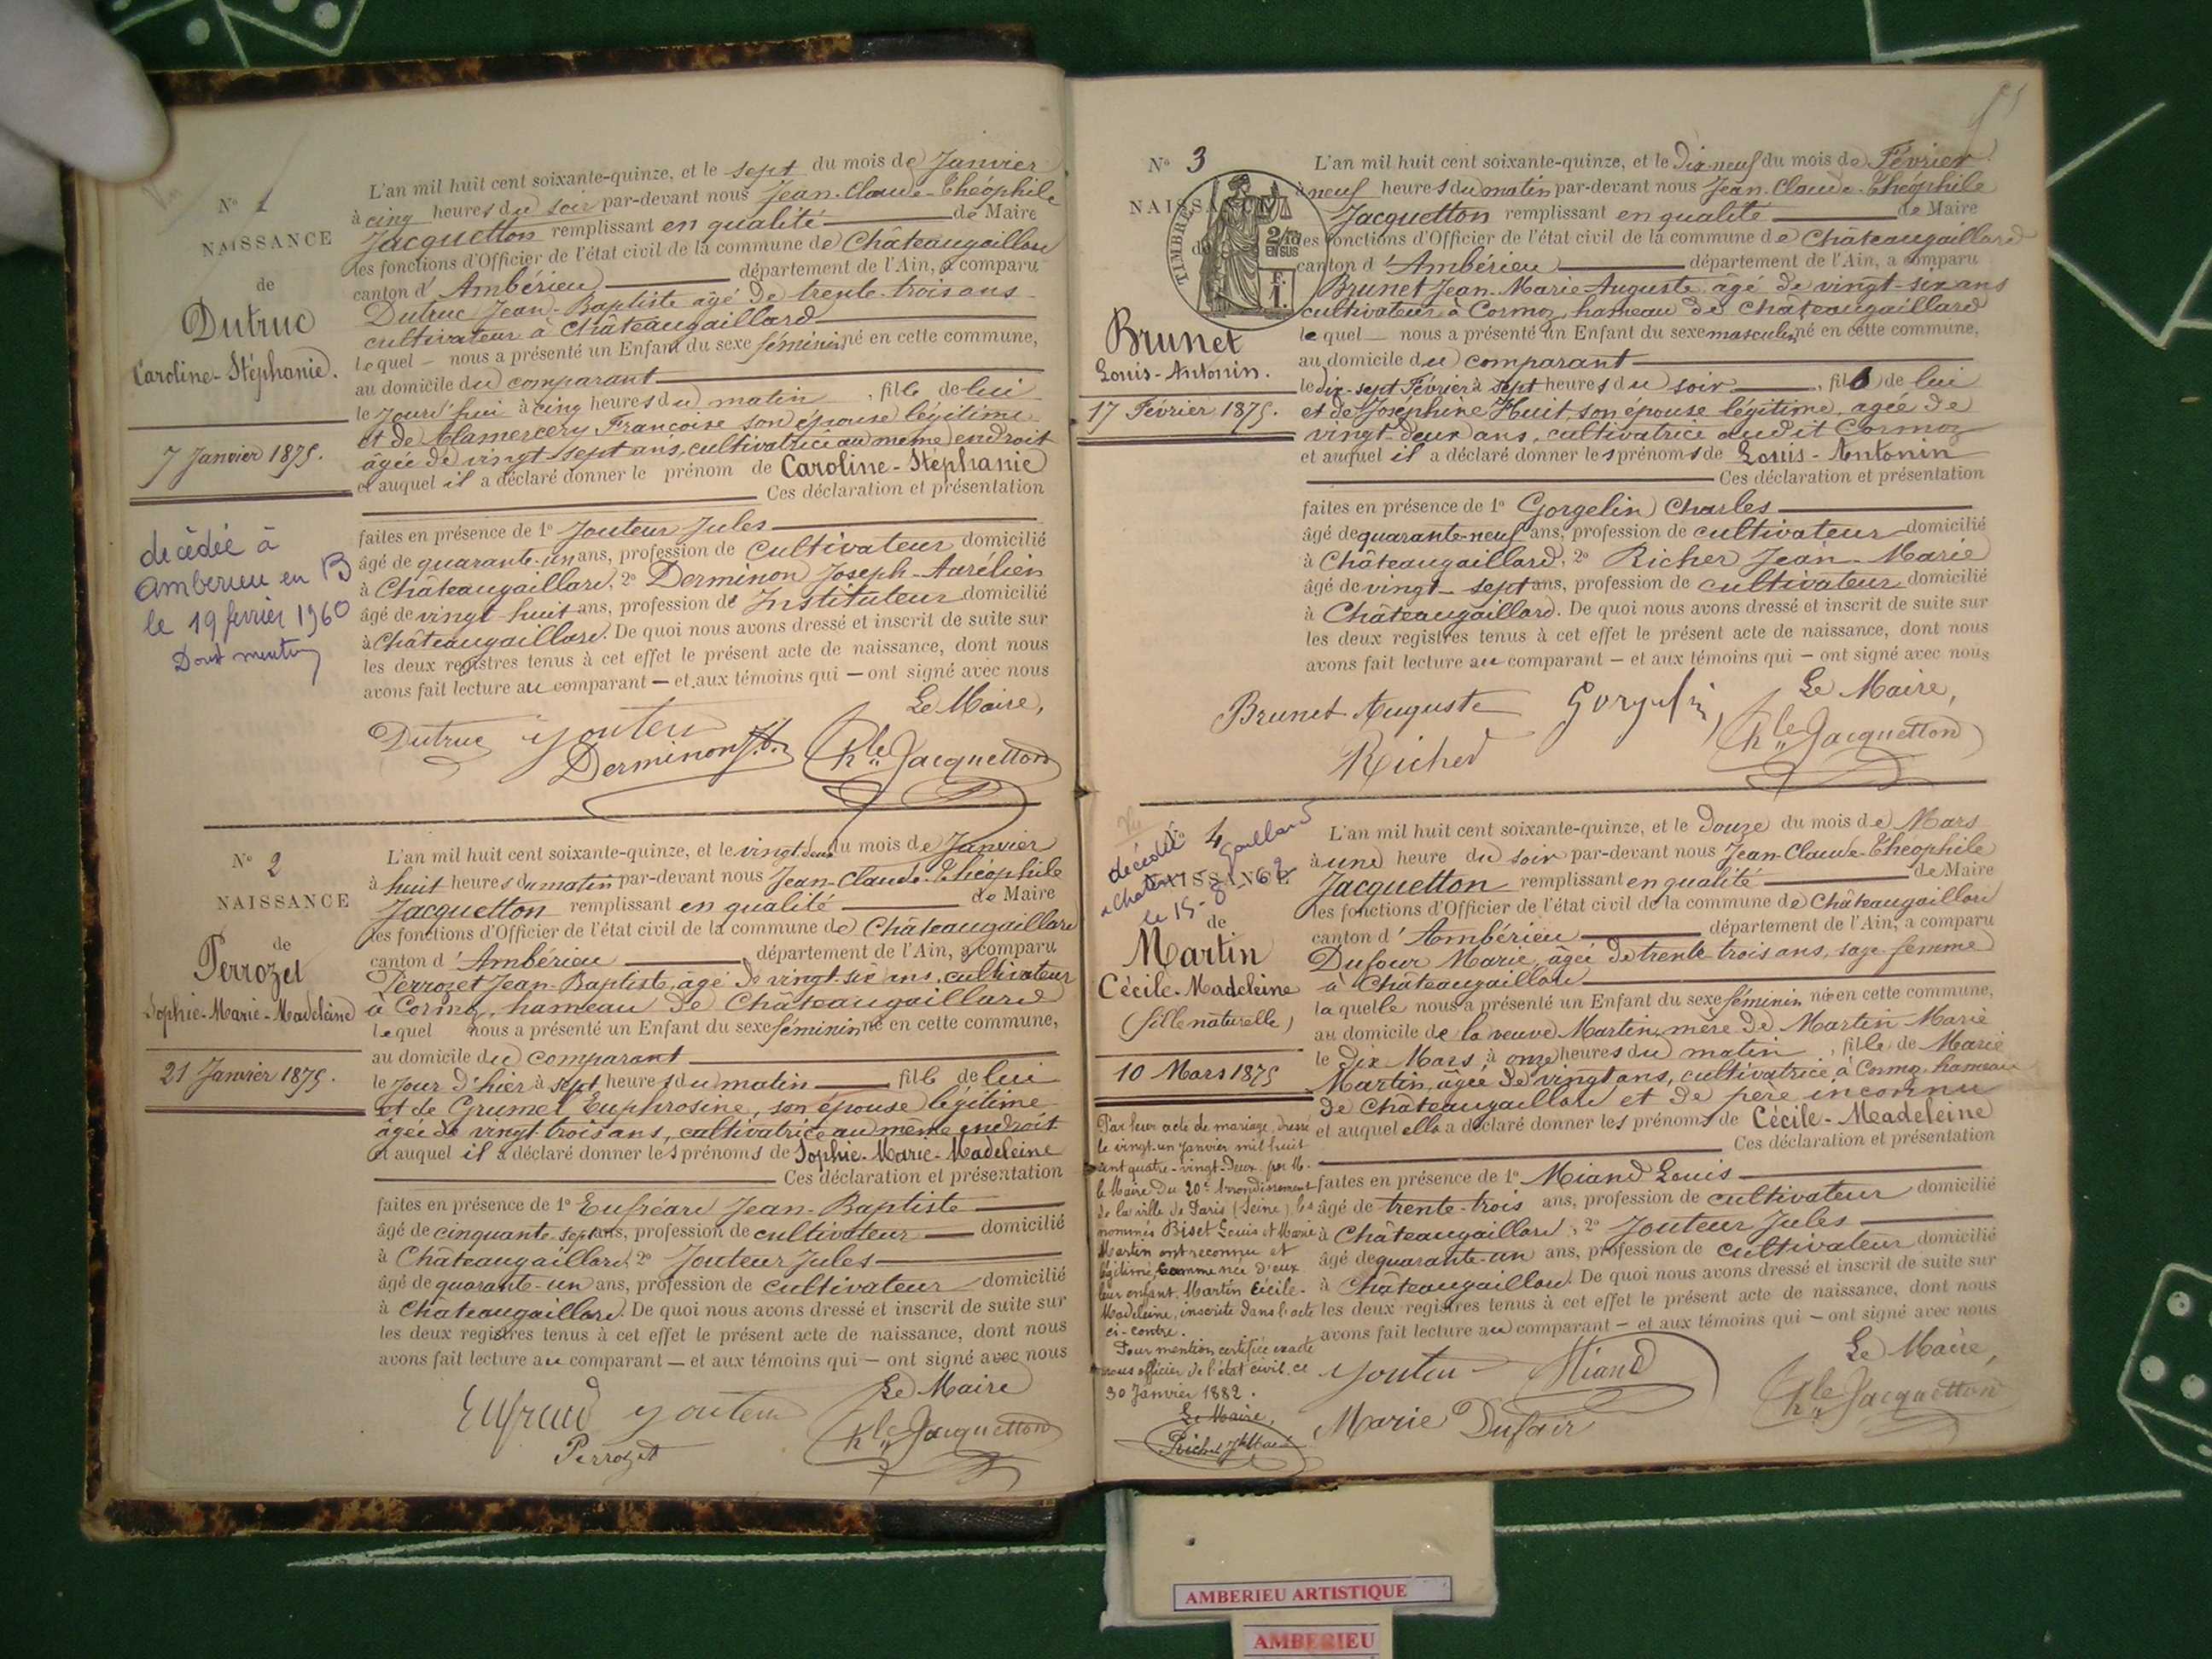 N° 1
NAISSANCE
de
Dutruc
Caroline-Stéphanie.
7 Janvier 1875.
décédée à
Amberieu en B
le 19 fevrier 1960
Dont mention
L'an mil huit cent soixante-quinze, et le sept du mois de Janvier
à cinq heures du soir par-devant nous Jean-Claude-Théophile
Jacquetton remplissant en qualité de Maire
les fonctions d'Officier de l'état civil de la commune de Châteaugaillard
canton d'Ambérieu département de l'Ain, a comparu
Dutruc Jean-Baptiste âgé de trente-trois ans
cultivateur à Châteaugaillard
lequel - nous a présenté un Enfant du sexe féminin né en cette commune,
au domicile du comparant
le jourd'hui à cinq heures du matin, fille de lui
et de Clamercery Françoise son épouse légitime
âgée de vingt-sept ans, cultivatrice au même endroit
et auquel il a déclaré donner le prénom de Caroline-Stéphanie
Ces déclaration et présentation
faites en présence de 1° Jouteur Jules
âgé de quarante-un ans, profession de cultivateur domicilié
à Châteaugaillard, 2° Derminon Joseph-Aurélien
âgé de vingt-huit ans, profession de Instituteur domicilié
à Châteaugaillard. De quoi nous avons dressé et inscrit de suite sur
les deux registres tenus à cet effet le présent acte de naissance, dont nous
avons fait lecture au comparant — et aux témoins qui — ont signé avec nous
Le Maire,
Dutruc Jouteu
Derminon Jh. Khle Jacquetton
N° 2
NAISSANCE
de
Perrozet
Sophie-Marie-Madeleine
21 Janvier 1875.
L'an mil huit cent soixante-quinze, et le vingt-deux du mois de Janvier
à huit heures du matin par-devant nous Jean-Claude-Théophile
Jacquetton remplissant en qualité de Maire
les fonctions d'Officier de l'état civil de la commune de Châteaugaillard
canton d'Ambérieu département de l'Ain, a comparu
Perrozet Jean-Baptiste, âgé de vingt-six ans, cultivateur
à Cormoz, hameau de Châteaugaillard
lequel nous a présenté un Enfant du sexe féminin né en cette commune,
au domicile du comparant
le jour d'hier à sept heures du matin fille de lui
et de Grumet Euphrosine, son épouse légitime
âgée de vingt-trois ans, cultivatrice au même endroit
et auquel il a déclaré donner les prénoms de Sophie-Marie-Madeleine
Ces déclaration et présentation
faites en présence de 1° Eufréard Jean-Baptiste
âgé de cinquante-sept ans, profession de cultivateur domicilié
à Châteaugaillard, 2° Jouteur Jules
âgé de quarante-un ans, profession de cultivateur domicilié
à Châteaugaillard. De quoi nous avons dressé et inscrit de suite sur
les deux registres tenus à cet effet le présent acte de naissance, dont nous
avons fait lecture au comparant — et aux témoins qui — ont signé avec nous
Le Maire
Eufreard Jouteu
Perrozet Khle Jacquetton
N° 3
NAISSA
TIMBRES
2/10 EN SUS
F. 1.
de
Brunet
Louis-Antonin.
17 Février 1875.
L'an mil huit cent soixante-quinze, et le Dix-neuf du mois de Février
à neuf heures du matin par-devant nous Jean-Claude-Théophile
Jacquetton remplissant en qualité de Maire
les fonctions d'Officier de l'état civil de la commune de Châteaugaillard
canton d'Ambérieu département de l'Ain, a comparu
Brunet Jean-Marie-Auguste âgé de vingt-six ans
cultivateur à Cormoz, hameau de Châteaugaillard
lequel nous a présenté un Enfant du sexe masculin né en cette commune,
au domicile du comparant
le dix-sept Février à sept heures du soir, fils de lui
et de Joséphine Huit, son épouse légitime, agée de
vingt-deux ans, cultivatrice audit Cormoz
et auquel il a déclaré donner les prénoms de Louis-Antonin
Ces déclaration et présentation
faites en présence de 1° Gorgelin Charles
âgé de quarante-neuf ans, profession de cultivateur domicilié
à Châteaugaillard, 2° Richer Jean-Marie
âgé de vingt-sept ans, profession de cultivateur domicilié
à Châteaugaillard. De quoi nous avons dressé et inscrit de suite sur
les deux registres tenus à cet effet le présent acte de naissance, dont nous
avons fait lecture au comparant — et aux témoins qui — ont signé avec nous
Le Maire,
Brunet Auguste Gorgelin
Richer Khle Jacquetton
Vu
N° 4
NAISSANCE
décédée
a Chateau Gaillard
le 15-8-1962
de
Martin
Cécile-Madeleine
(fille naturelle)
10 Mars 1875
Par leur acte de mariage, dressé
le vingt-un Janvier mil huit
cent quatre-vingt-Deux par M.
le Maire du 20e Arrondissement
de la ville de Paris (Seine), les
nommés Biset Louis et Marie
Martin ont reconnu et
légitimé, comme née d'eux
leur enfant, Martin Cécile-
Madeleine, inscrite dans l'acte
ci-contre.
Pour mention certifiée exacte
nous officier de l'état civil, ce
30 Janvier 1882.
Le Maire,
L'an mil huit cent soixante-quinze, et le Douze du mois de Mars
à une heure du soir par-devant nous Jean-Claude-Théophile
Jacquetton remplissant en qualité de Maire
les fonctions d'Officier de l'état civil de la commune de Châteaugaillard
canton d'Ambérieu département de l'Ain, a comparu
Dufour Marie, âgée de trente-trois ans, sage-femme
à Châteaugaillard
laquelle nous a présenté un Enfant du sexe féminin né en cette commune,
au domicile de la veuve Martin, mère de Martin Marie
le Dix Mars, à onze heures du matin, fille de Marie
Martin, âgée de vingt ans, cultivatrice, à Cormoz hameau
de Châteaugaillard et de père inconnu
et auquel elle a déclaré donner les prénoms de Cécile-Madeleine
Ces déclaration et présentation
faites en présence de 1° Miand Louis
âgé de trente-trois ans, profession de cultivateur domicilié
à Châteaugaillard, 2° Jouteur Jules
âgé de quarante-un ans, profession de cultivateur domicilié
à Châteaugaillard. De quoi nous avons dressé et inscrit de suite sur
les deux registres tenus à cet effet le présent acte de naissance, dont nous
avons fait lecture au comparant — et aux témoins qui — ont signé avec nous
Le Maire,
Jouteu Miand
Marie Dufour Khle Jacquetton
AMBERIEU ARTISTIQUE
AMBERIEU